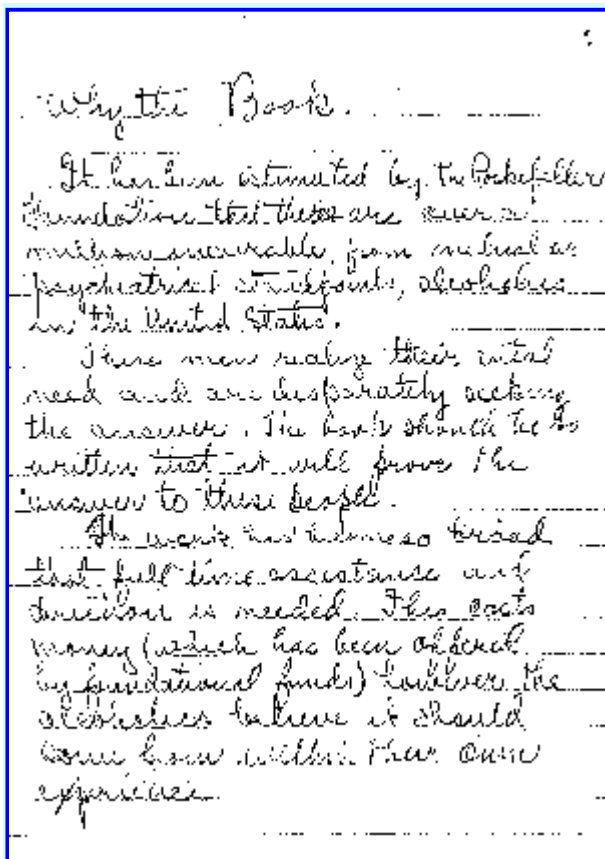 Why the Book.
It has been estimated by the Rockefeller
Foundation that there are over a
million incurable, from medical or
psychiatrist standpoints, alcoholics
in the United States.
These men realize their vital
need and are desparately seeking
the answer. The book should be so
written that it will prove the
answer to these people.
The work has become so broad
that full time assistance and
direction is needed. This costs
money (which has been offered
by foundational funds) however, the
alcoholics believe it should
come from within their own
experience.